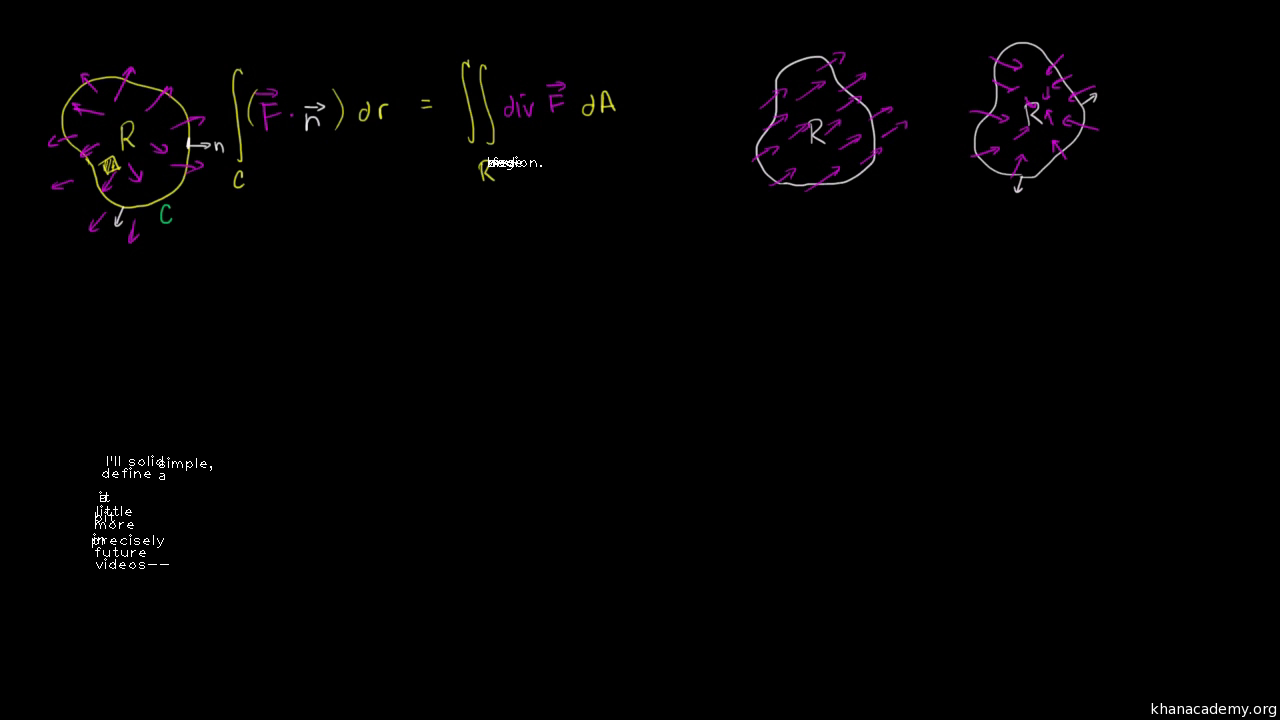 R
n
C
∫_C (F⃗ · n⃗) dr = ∬_R div F⃗ dA
R
R
region.
I'll solid simple,
define a
it
little
bit
more
precisely
in
future
videos--
khanacademy.org